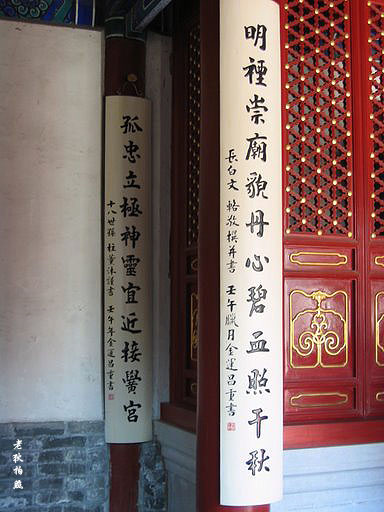 明禋崇廟貌丹心碧血照千秋
長白文 敬撰并書 壬午臘月金運昌重書
孤忠立極神靈宜近接黌宮
十八世孫 柱 沐謹書 壬午年金運昌重書
老狄拍攝